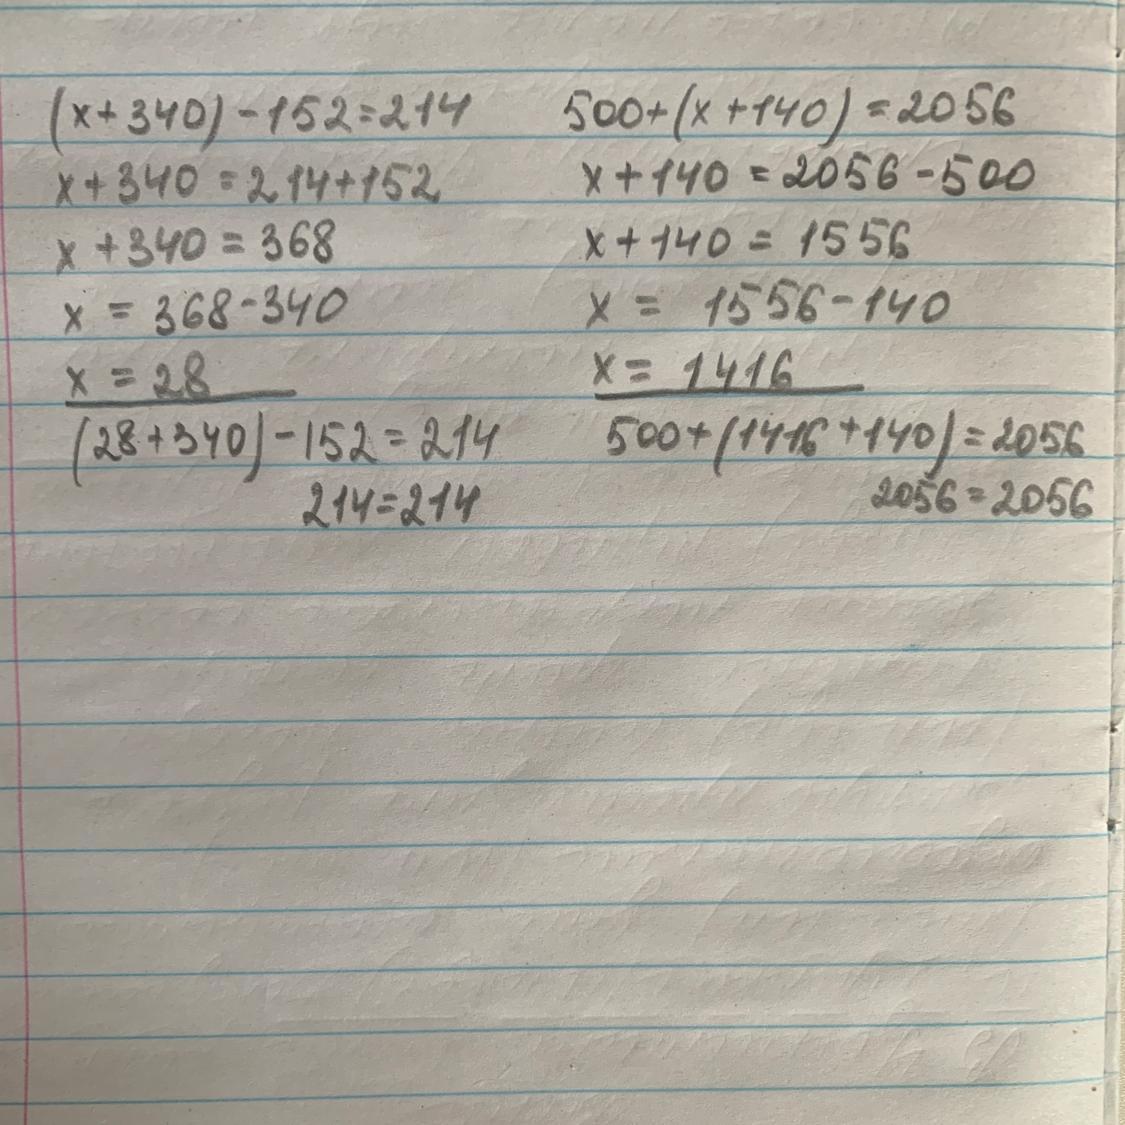 (x+340)-152=214
x+340=214+152
x+340=368
x=368-340
x=28
(28+340)-152=214
214=214
500+(x+140)=2056
x+140=2056-500
x+140=1556
x=1556-140
x=1416
500+(1416+140)=2056
2056=2056